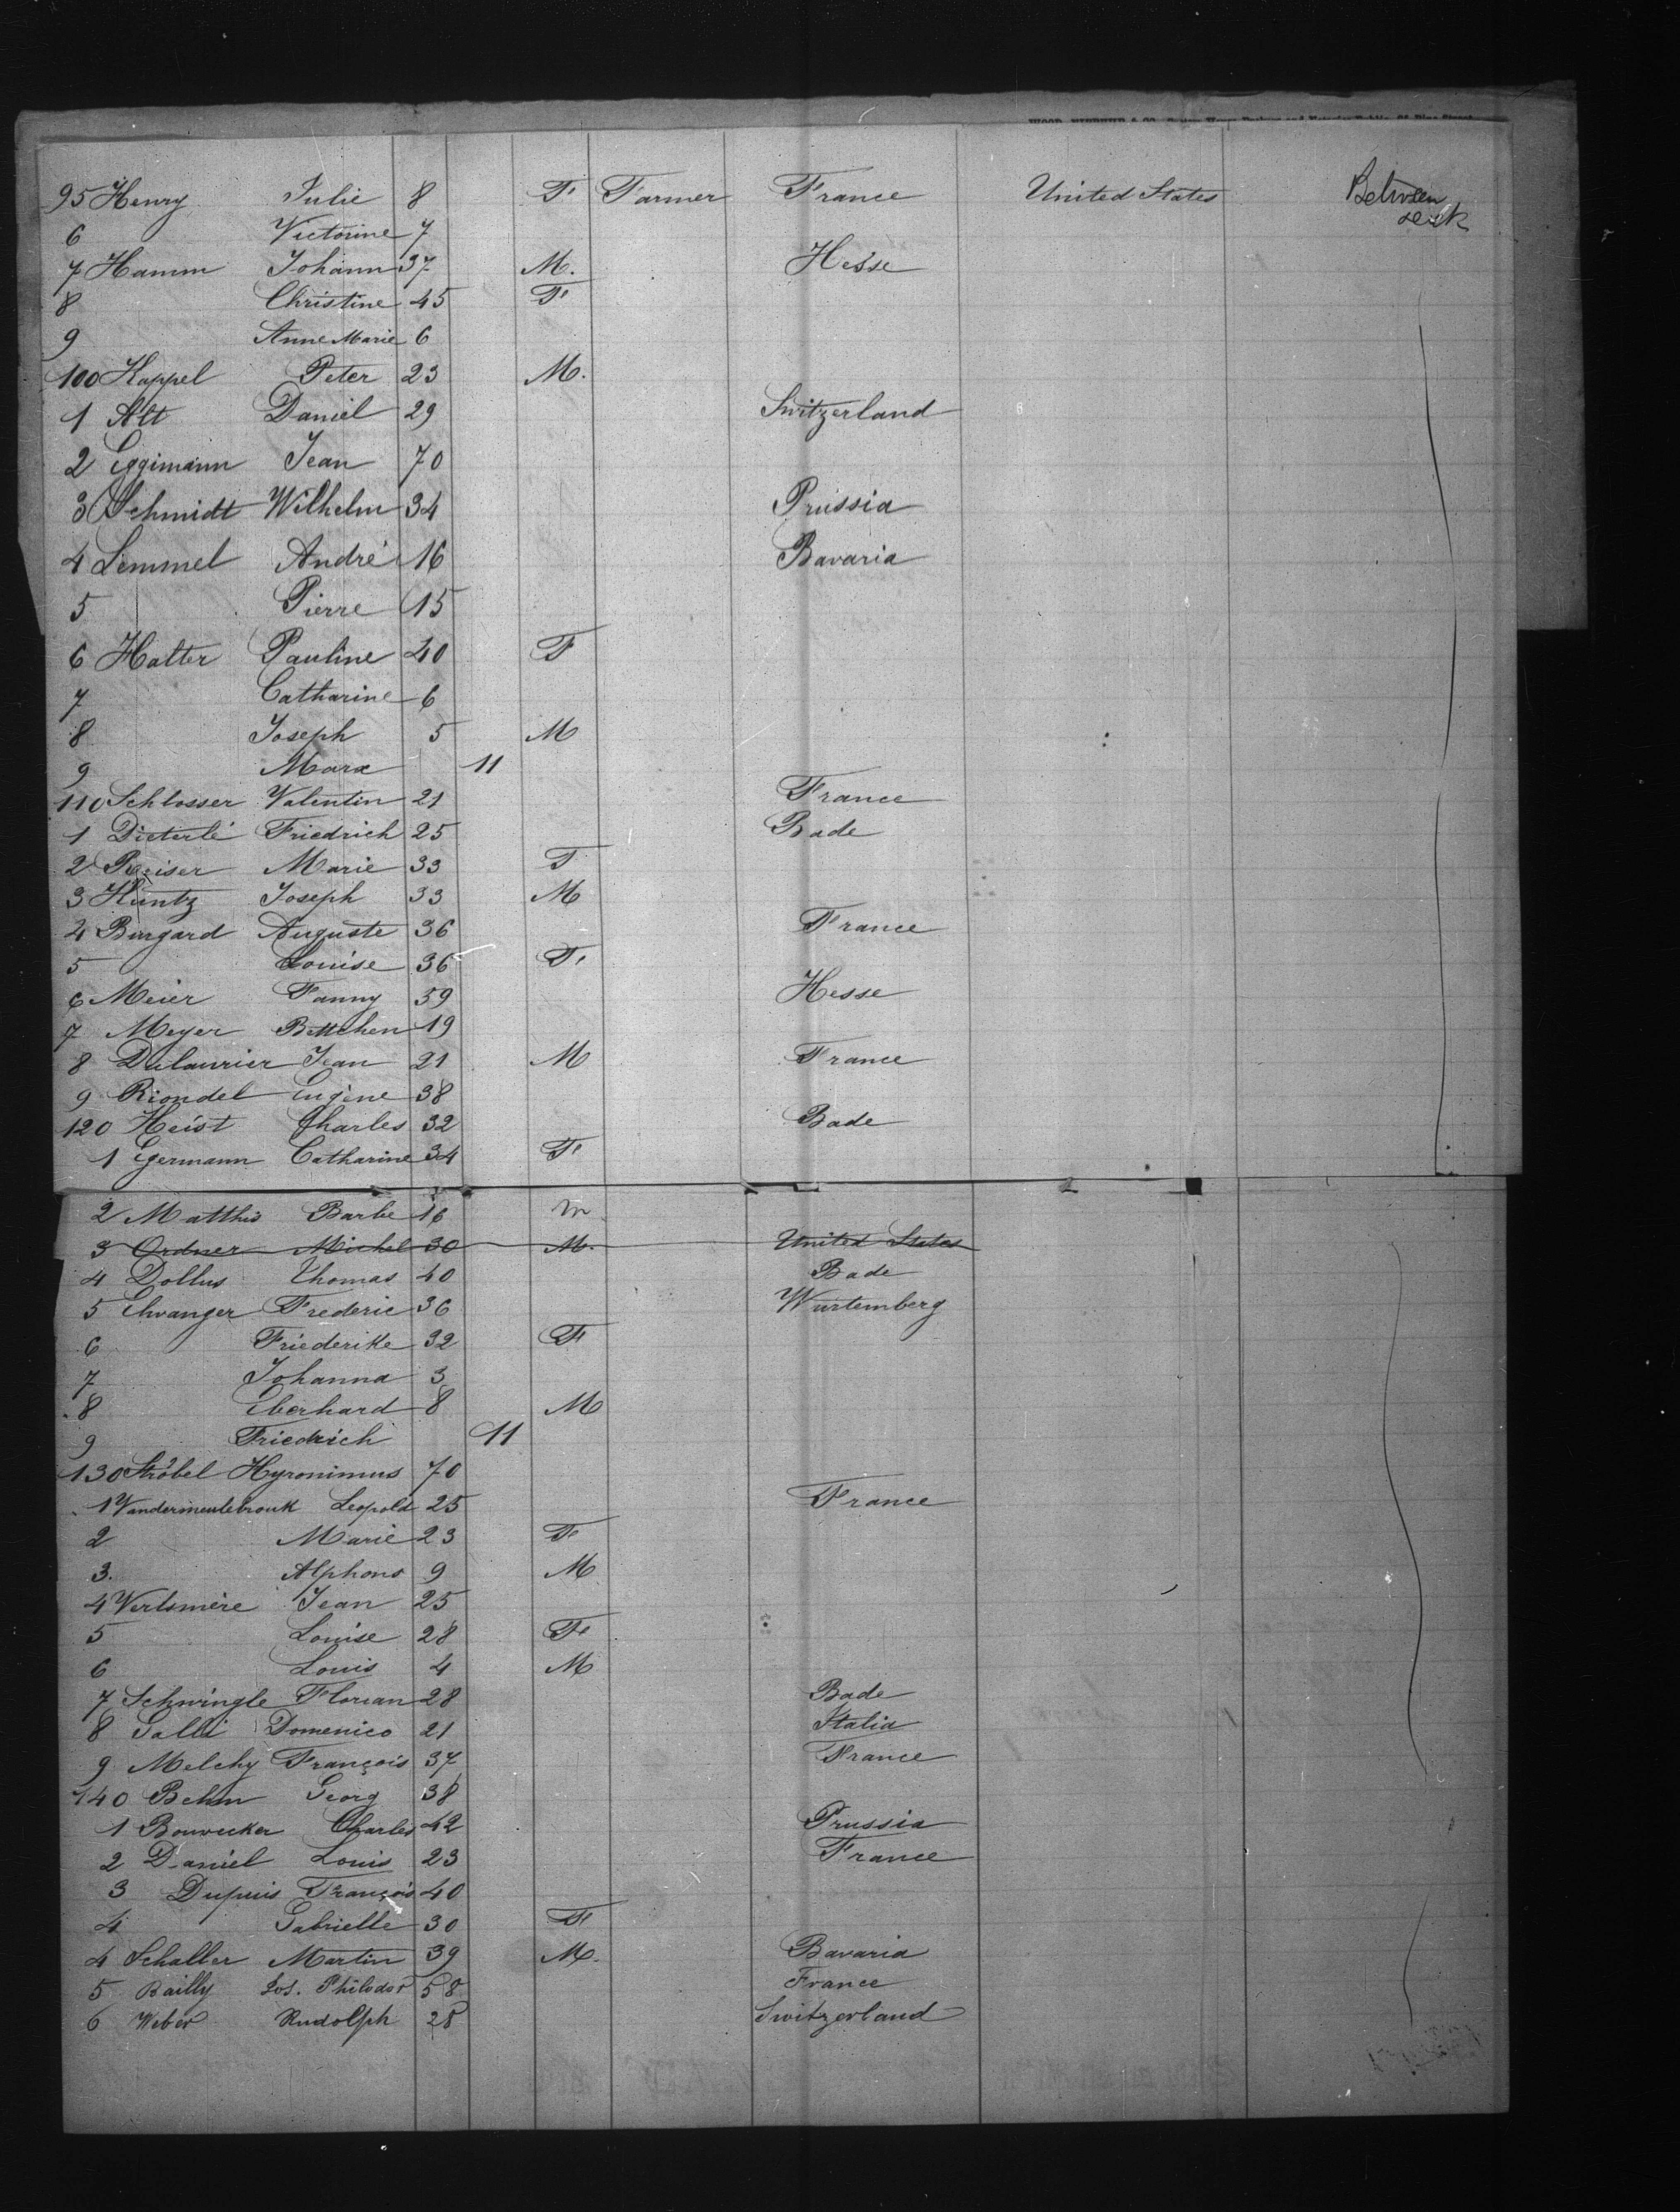 95 Henry Julie 8 F Farmer France United States Between deck
6 Victorine 7
7 Hamm Johann 37 M. Hesse
8 Christine 45 F
9 Anne Marie 6
100 Kappel Peter 23 M.
1 Alt Daniel 29 Switzerland
2 Eggimann Jean 70
3 Schmidt Wilhelm 34 Prussia
4 Lemmel André 16 Bavaria
5 Pierre 15
6 Halter Pauline 40 F
7 Catharine 6
8 Joseph 5 M
9 Marx 11
110 Schlosser Valentin 21 France
1 Dieterlé Friedrich 25 Bade
2 Reiser Marie 33 F
3 Huntz Joseph 33 M
4 Burgard Auguste 36 France
5 Louise 36 F
6 Meier Fanny 59 Hesse
7 Meyer Bettchen 19
8 Dulaurier Jean 21 M France
9 Riondel Eugène 38
120 Heist Charles 32 Bade
1 Egermann Catharine 34 F
2 Matthis Barbe 16 m
3 Ordner Michel 30 M. United States
4 Dollus Thomas 40 Bade
5 Ehvanger Frederic 36 Wurtemberg
6 Friederike 32 F
7 Johanna 3
8 Eberhard 8 M
9 Friedrich 11
130 Ströbel Hyronimus 70
1 Vandermeulebrouk Leopold 25 France
2 Marie 23 F
3. Alphons 9 M
4 Vertsmère Jean 25
5 Louise 28 F
6 Louis 4 M
7 Schwingle Florian 28 Bade
8 Galli Domenico 21 Italia
9 Melchy François 37 France
140 Behm Georg 38
1 Bouvecker Charles 42 Prussia
2 Daniel Louis 23 France
3 Dupuis François 40
4 Gabrielle 30 F
4 Schaller Martin 39 M. Bavaria
5 Bailly Jos. Philodor 58 France
6 Weber Rudolph 28 Switzerland